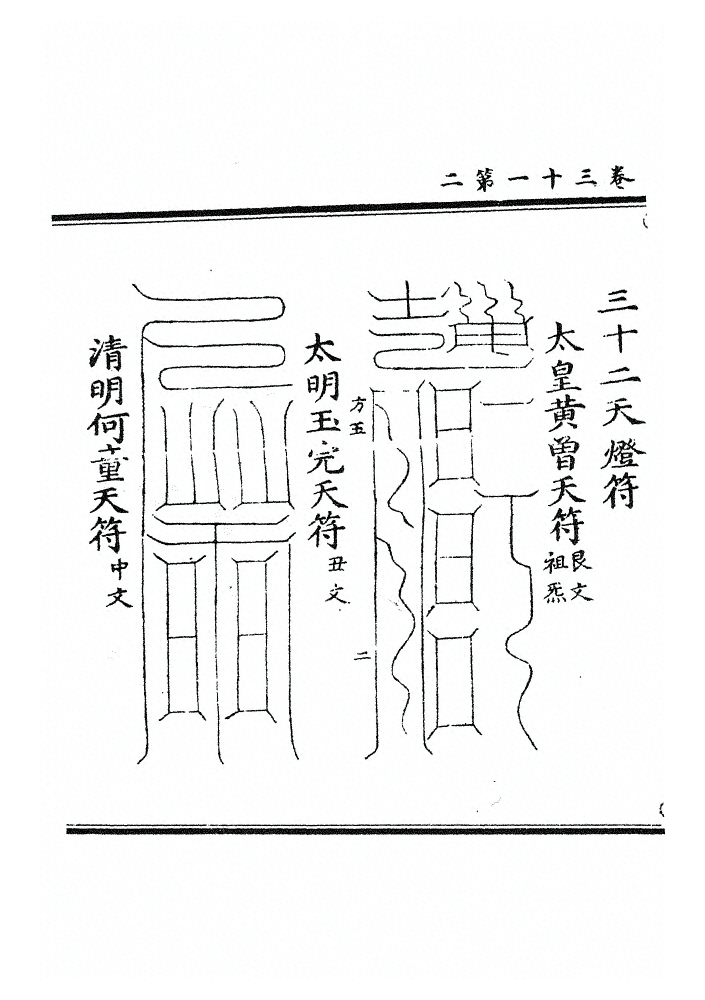 卷三十一第二
三十二天燈符
太皇黃曾天符
艮文
祖炁
太明玉完天符
丑文
方五
二
清明何童天符
中文